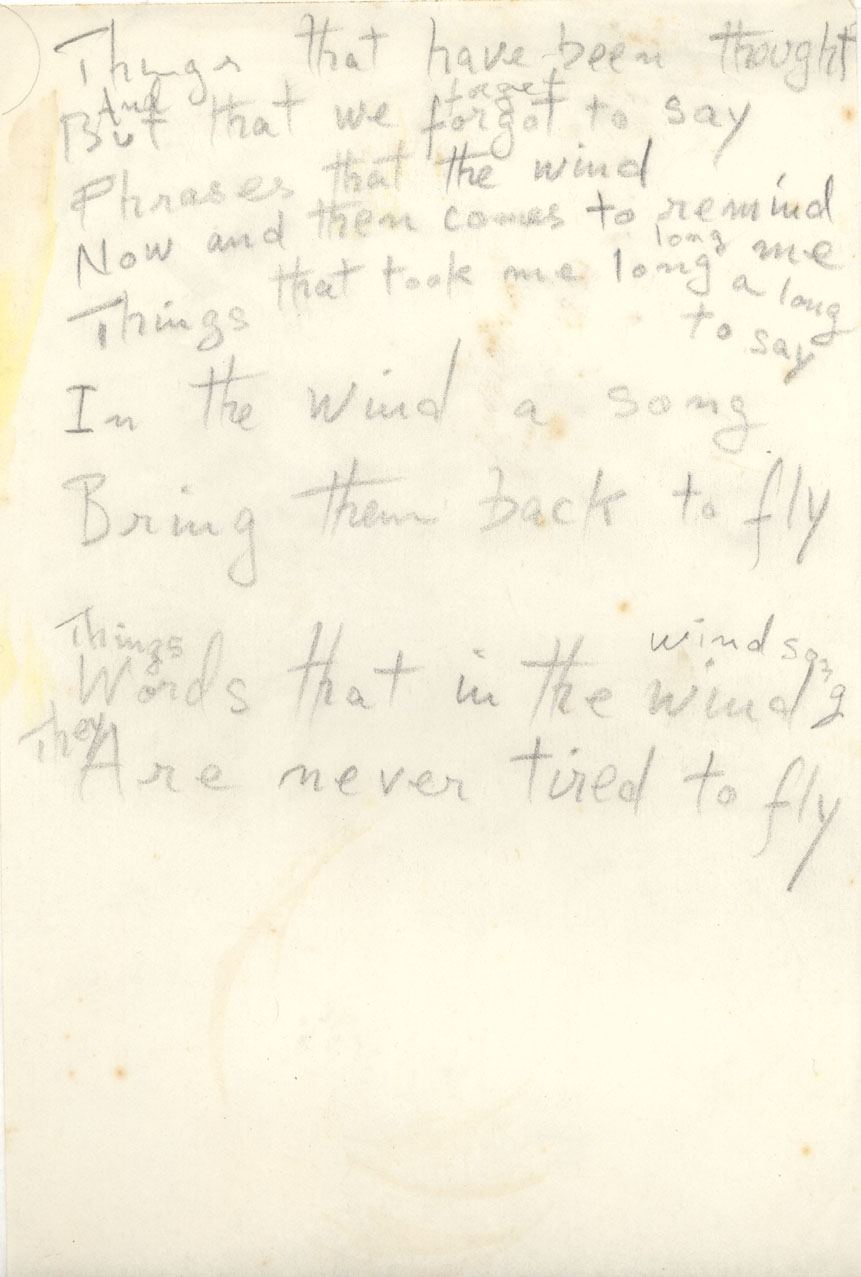 Things that have been thought
And forget
But that we forgot to say
Phrases that the wind
Now and then comes to remind
long me
Things that took me long a long
to say
In the wind a song
Bring them back to fly
Things wind sang
Words that in the wind
They
Are never tired to fly